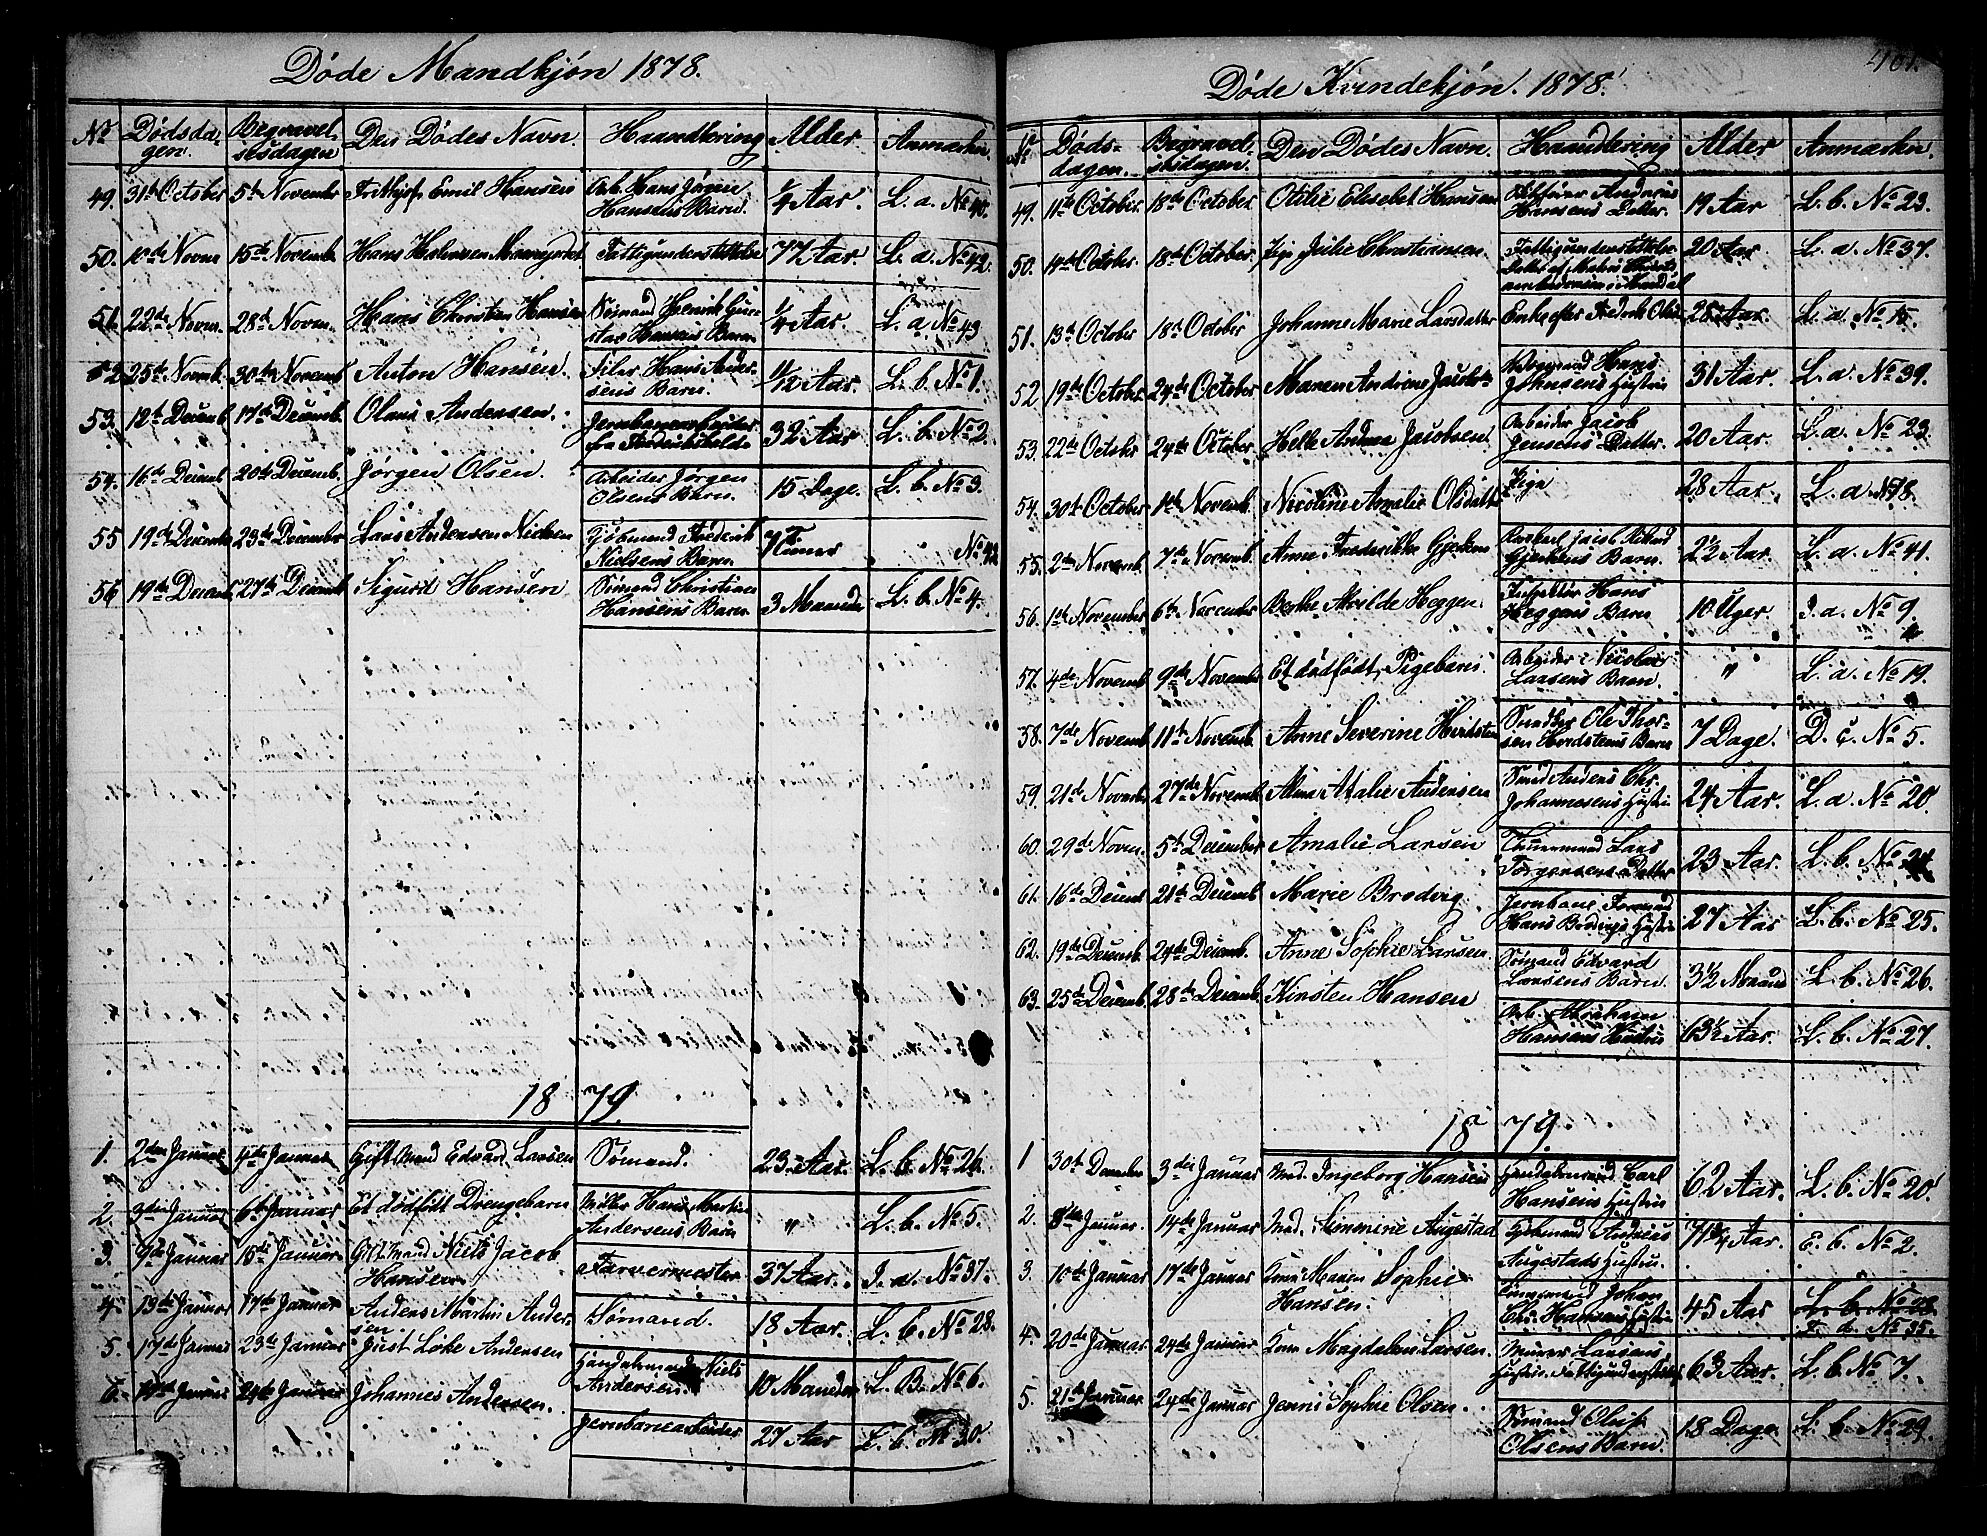 Døde Mandkjøn 1878.
No Dødsdagen. Begravelsesdagen Den Dødes Navn. Haandtering Alder. Anmærkn.
49. 31te October 5te Novembr Frithjof Emil Hansen Arb. Hans Jørgen Hansens Barn. 1/4 Aar. L. a. No 40.
50. 10de Novm 15de Novemb. Hans Fattigunderstøttelse 77 Aar. L. a. No 42.
51. 22de Novm. 28de Novm. Hans Christian Hansen Sømand Henrik Gustav Hansens Barn 1/4 Aar. L. a. No 43
52 25de Novmb. 30te Novemb Anton Hansen. Hans Andersens Barn. Aar. L. b. No 1.
53. 12te Decemb 17de Decemb. Olaus Andersen. Jernbanearbeider fra Frederikshald 32 Aar L. b. No 2.
54. 16de Decemb 20de Decemb. Jørgen Olsen. Arbeider Jørgen Olsens Barn. 15 Dage. L. b. No 3.
55 19de Decemb 23de December Lars Andersen Nielsen Frederik Nielsens Barn 7 Timer No 42
56 19de Decemb. 27de Decemb Sigurd Hansen Sømand Christian Hansens Barn 3 Maaneder L. b. No 4.
18 79.
1. 2den Januar 4de Januar Gift Mand Edvard Larsen Sømand. 23 Aar. L. b. No 26.
2. 3die Januar 6te Januar Et dødfødt Drengebarn Hans Martin Andersens Barn " L. b. No 5.
3. 9de Januar 15de Januar Gift Mand Niels Jacob Hansen Farvermester 37 Aar. J. a. No 37.
4. 13de Januar 17de Januar Anders Martin Andersen Sømand. 18 Aar. L. b. No 28.
5. 17de Januar 23de Januar Just Andersen Handelsmand Niels Andersen 10 Maaneder L. B. No 6.
6. 19de Januar 24de Januar Johannes Andersen. Jernbanearbeider 27 Aar L. b. No 30.
401.
Døde Kvindekjøn. 1878.
No Dødsdagen. Begravelsesdagen. Den Dødes Navn. Haandtering Alder Anmærkn.
49. 11te October. 18de October. Otilie Elisebet Hansen Andreas Hansens Datter. 19 Aar L. b. No 23.
50. 14de October. 18de October. Pige Julie Christiansen. Fattigunderstøttelse Datter af 20 Aar L. a. No 37.
51. 13de October 18de October Johanne Marie Larsdatter Enke efter Fredrik 28 Aar. L. a. No 15.
52. 19de October. 24de October Maren Andrine Jacobs Hans Johnsens Hustru 31 Aar. L. a. No 39.
53. 22de Octobr 24de October. Helle Andrea Jacobsen. Arbeider Jacob Jensens Datter. 20 Aar. L. a. No 23.
54. 30te October 4de Novemb. Nicoline Amalie Olsdatter Pige 28 Aar. L. a. No 18.
55. 2den Novemb. 7de Novemb. Anne Fredrikke Gjerksen Jacob Gjerksens Barn. 2½ Aar. L. a. No 41.
56. 1ste November 6te November Berthe Alvilde Heggen. Inspektør Hans Heggens Barn 10 Uger. J. a. No 9.
57. 4de Novemb 9de Novemb Et dødfødt Pigebarn. Arbeider Nicolai Larsens Barn. " L. a. No 19.
58. 7de Novemb 11te Novemb. Anne Severine Hvidsten Snedker Ole Thorsen Hvidstens Barn 7 Dage. D. c. No 5.
59. 21de Novemb 27de Novemb. Alma Atalie Andersen Smed Anders Chr. Johannesens Hustru 24 Aar. L. a. No 20
60. 29de Novm. 5te December Amalie Larsen Lars Jørgensens Datter 23 Aar. L. b. No 24
61. 16de Decemb 21de Decemb Marie Brodvig. Jernbane Formand Hans Brodvigs Hustru 27 Aar L. b. No 25.
62. 19de Decemb. 24de Decemb. Anne Sophie Larsen. Sømand Edvard Larsens Barn. 3½ Maaned L. b. No 26.
63. 25de Decemb. 28de Decemb. Kirsten Hansen Arb. Abraham Hansens Hustru 63½ Aar. L. b. No 27.
18 79.
1 30te December 3die Januar Mad. Ingeborg Hansen Handelsmand Carl Hansens Hustru 62 Aar. L. b. No 20.
2. 8de Januar. 14de Januar Mad. Simmine Augestad Andreas Augestads Hustru. 71¾ Aar. E. b. No 2.
3. 10de Januar 17de Januar Kone Maren Sophie Hansen. Johan Chr. Hansens Hustru 45 Aar L. b. No 28. No 35.
4. 20de Januar 24de Januar Kone Magdalene Larsen. Larsens Hustru. Fattigunderstøttelse 63 Aar. L. b. No 7.
5. 21de Januar 24de Januar Jenni Sophie Olsen. Sømand Oluf Olsens Barn. 18 Dage. L. b. No 29.